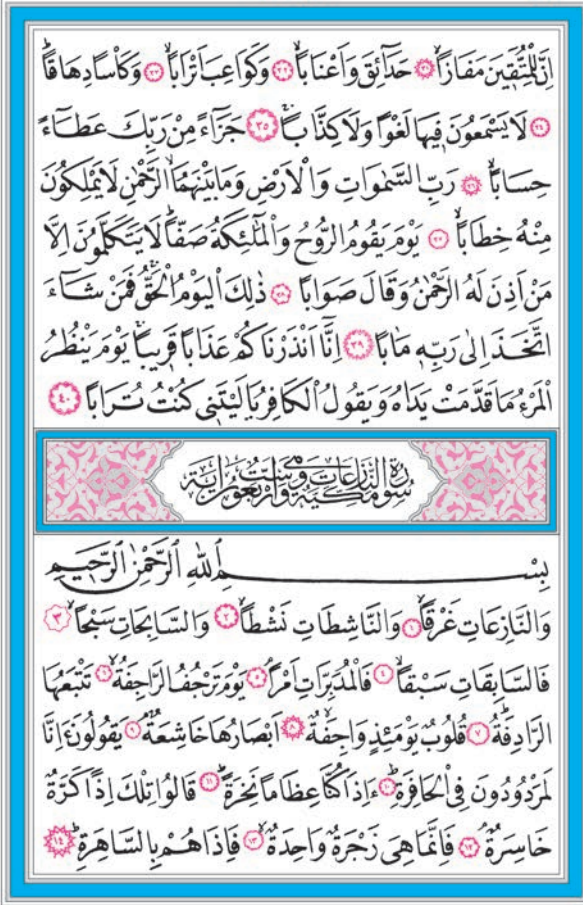 اِنَّ لِلْمُتَّق۪ينَ مَفَازًاۙ ﴿٣١﴾ حَدَٓائِقَ وَاَعْنَابًاۙ ﴿٣٢﴾ وَكَوَاعِبَ اَتْرَابًاۙ ﴿٣٣﴾ وَكَأْسًا دِهَاقًاۜ
﴿٣٤﴾ لَا يَسْمَعُونَ ف۪يهَا لَغْوًا وَلَا كِذَّابًاۚ ﴿٣٥﴾ جَزَٓاءً مِنْ رَبِّكَ عَطَٓاءً
حِسَابًاۙ ﴿٣٦﴾ رَبِّ السَّمٰوَاتِ وَالْاَرْضِ وَمَا بَيْنَهُمَا الرَّحْمٰنِ لَا يَمْلِكُونَ
مِنْهُ خِطَابًاۚ ﴿٣٧﴾ يَوْمَ يَقُومُ الرُّوحُ وَالْمَلٰٓئِكَةُ صَفًّاۜ لَا يَتَكَلَّمُونَ اِلَّا
مَنْ اَذِنَ لَهُ الرَّحْمٰنُ وَقَالَ صَوَابًا ﴿٣٨﴾ ذٰلِكَ الْيَوْمُ الْحَقُّۚ فَمَنْ شَٓاءَ
اتَّخَذَ اِلٰى رَبِّه۪ مَاٰبًا ﴿٣٩﴾ اِنَّٓا اَنْذَرْنَاكُمْ عَذَابًا قَر۪يبًاۚ يَوْمَ يَنْظُرُ
الْمَرْءُ مَا قَدَّمَتْ يَدَاهُ وَيَقُولُ الْكَافِرُ يَا لَيْتَن۪ي كُنْتُ تُرَابًا ﴿٤٠﴾
سُورَةُ النَّازِعَاتِ مَكِّيَّةٌ وَهِيَ سِتٌّ وَاَرْبَعُونَ اٰيَةً
بِسْمِ اللهِ الرَّحْمٰنِ الرَّح۪يمِ
وَالنَّازِعَاتِ غَرْقًاۙ ﴿١﴾ وَالنَّاشِطَاتِ نَشْطًاۙ ﴿٢﴾ وَالسَّابِحَاتِ سَبْحًاۙ ﴿٣﴾
فَالسَّابِقَاتِ سَبْقًاۙ ﴿٤﴾ فَالْمُدَبِّرَاتِ اَمْرًاۢ ﴿٥﴾ يَوْمَ تَرْجُفُ الرَّاجِفَةُۙ ﴿٦﴾ تَتْبَعُهَا
الرَّادِفَةُۜ ﴿٧﴾ قُلُوبٌ يَوْمَئِذٍ وَاجِفَةٌۙ ﴿٨﴾ اَبْصَارُهَا خَاشِعَةٌۢ ﴿٩﴾ يَقُولُونَ ءَاِنَّا
لَمَرْدُودُونَ فِي الْحَافِرَةِۜ ﴿١٠﴾ ءَاِذَا كُنَّا عِظَامًا نَخِرَةًۜ ﴿١١﴾ قَالُوا تِلْكَ اِذًا كَرَّةٌ
خَاسِرَةٌۢ ﴿١٢﴾ فَاِنَّمَا هِيَ زَجْرَةٌ وَاحِدَةٌۙ ﴿١٣﴾ فَاِذَا هُمْ بِالسَّاهِرَةِۜ ﴿١٤﴾